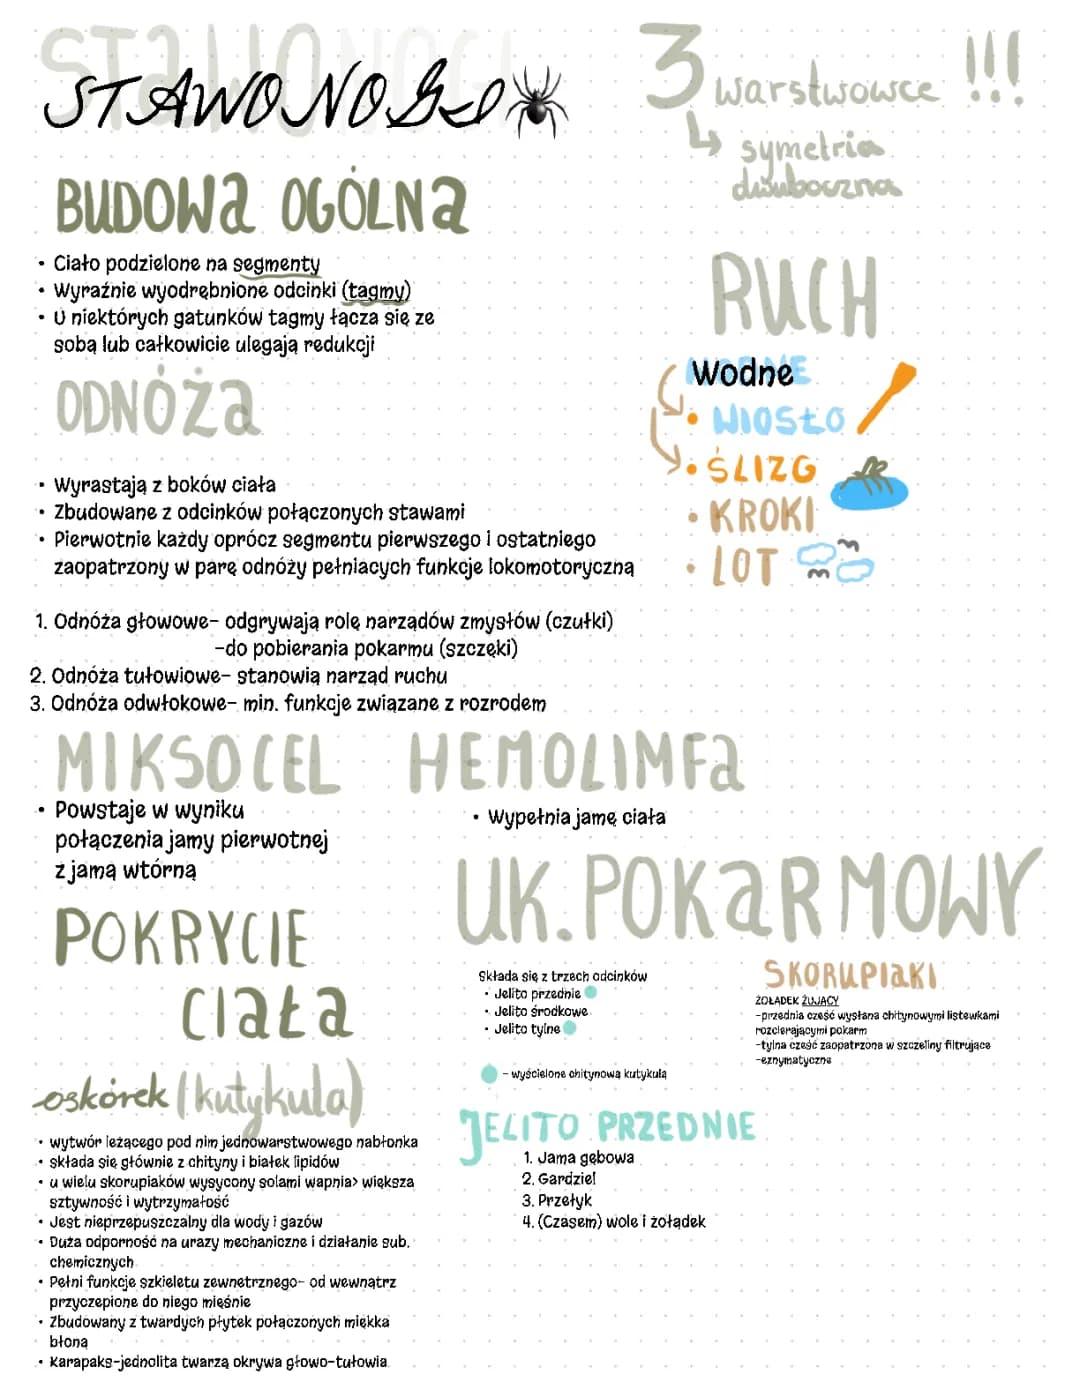 STAWONOGI
STAWONOGI
3 warstwowce !!!
symetria
dwuboczna
BUDOWA OGÓLNA
• Ciało podzielone na segmenty
• Wyraźnie wyodrębnione odcinki (tagmy)
• U niektórych gatunków tagmy łącza się ze
sobą lub całkowicie ulegają redukcji
RUCH
Wodne
• WIOSŁO
• ŚLIZG
• KROKI
• LOT
ODNÓŻA
• Wyrastają z boków ciała
• Zbudowane z odcinków połączonych stawami
• Pierwotnie każdy oprócz segmentu pierwszego i ostatniego
zaopatrzony w parę odnóży pełniacych funkcje lokomotoryczną
1. Odnóża głowowe- odgrywają rolę narządów zmysłów (czułki)
-do pobierania pokarmu (szczęki)
2. Odnóża tułowiowe- stanowią narząd ruchu
3. Odnóża odwłokowe- min. funkcje związane z rozrodem
MIKSOCEL
• Powstaje w wyniku
połączenia jamy pierwotnej
z jamą wtórną
HEMOLIMFA
• Wypełnia jamę ciała
POKRYCIE
CIAŁA
oskórek (kutykula)
• wytwór leżącego pod nim jednowarstwowego nabłonka
• składa się głównie z chityny i białek lipidów
• u wielu skorupiaków wysycony solami wapnia> większa
sztywność i wytrzymałość
• Jest nieprzepuszczalny dla wody i gazów
• Duża odporność na urazy mechaniczne i działanie sub.
chemicznych
• Pełni funkcje szkieletu zewnetrznego- od wewnątrz
przyczepione do niego mięśnie
• Zbudowany z twardych płytek połączonych miękka
błoną
• Karapaks-jednolita twarzą okrywa głowo-tułowia
UK. POKARMOWY
Składa się z trzech odcinków
• Jelito przednie
• Jelito środkowe
• Jelito tylne
- wyścielone chitynową kutykulą
SKORUPIAKI
ŻOŁADEK ŻUJACY
-przednia cześć wysłana chitynowymi listewkami
rozcierającymi pokarm
-tylna cześć zaopatrzona w szczeliny filtrujące
-eznymatyczne
JELITO PRZEDNIE
1. Jama gębowa
2. Gardziel
3. Przełyk
4. (Czasem) wole i żołądek